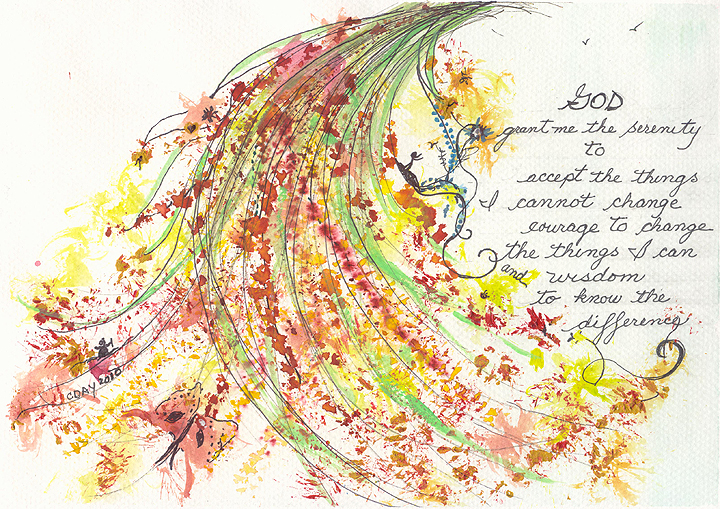 GOD
grant me the serenity
to
accept the things
I cannot change
courage to change
the things I can
and wisdom
to know the
difference
CDAY 2010